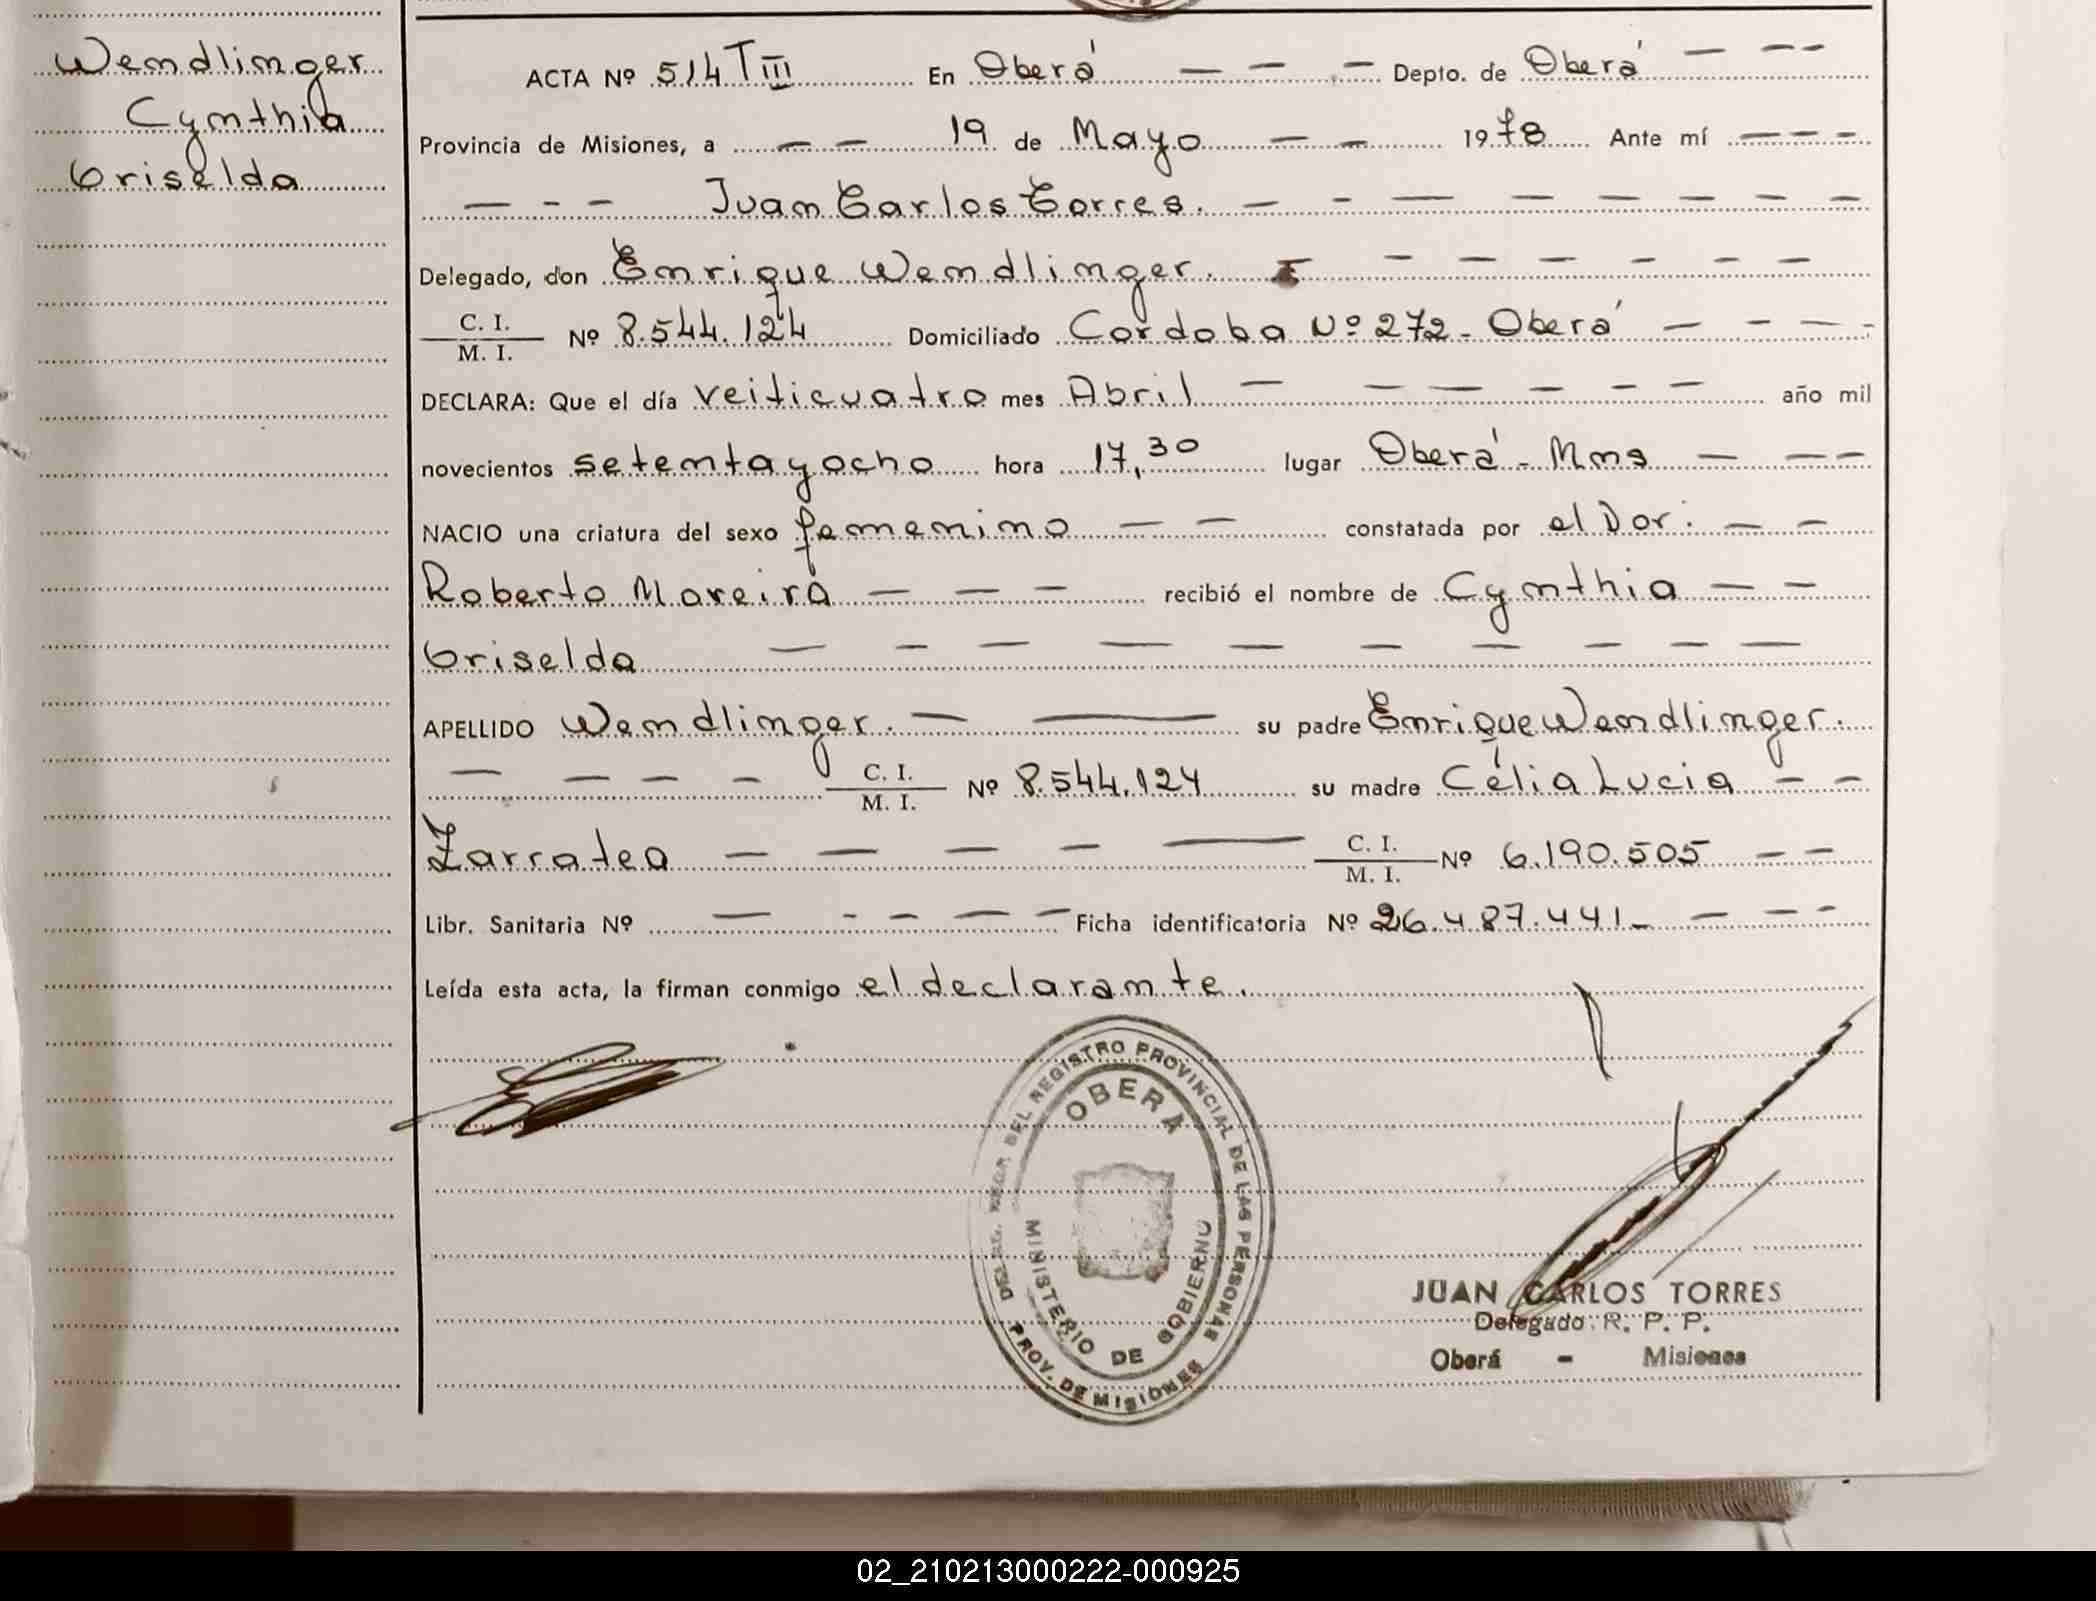 Wendlinger
Cynthia
Griselda
ACTA Nº 514 T III En Oberá Depto. de Oberá
Provincia de Misiones, a 19 de Mayo 1978 Ante mí
Juan Carlos Torres.
Delegado, don Enrique Wendlinger.
C. I.
M. I. Nº 8.544.124 Domiciliado Cordoba Nº 272 - Oberá
DECLARA: Que el día veiticuatro mes Abril año mil
novecientos setenta y ocho hora 17,30 lugar Oberá - Mnes
NACIO una criatura del sexo femenino constatada por el Dor.
Roberto Moreira recibió el nombre de Cynthia
Griselda
APELLIDO Wendlinger. su padre Enrique Wendlinger.
C. I.
M. I. Nº 8.544.124 su madre Célia Lucia
Zarratea C. I.
M. I. Nº 6.190.505
Libr. Sanitaria Nº Ficha identificatoria Nº 26.487.441
Leída esta acta, la firman conmigo el declarante.
DEL REGISTRO PROVINCIAL DE LAS PERSONAS
OBERA
MINISTERIO DE GOBIERNO
PROV. DE MISIONES
JUAN CARLOS TORRES
Delegado R. P. P.
Oberá - Misiones
02_210213000222-000925